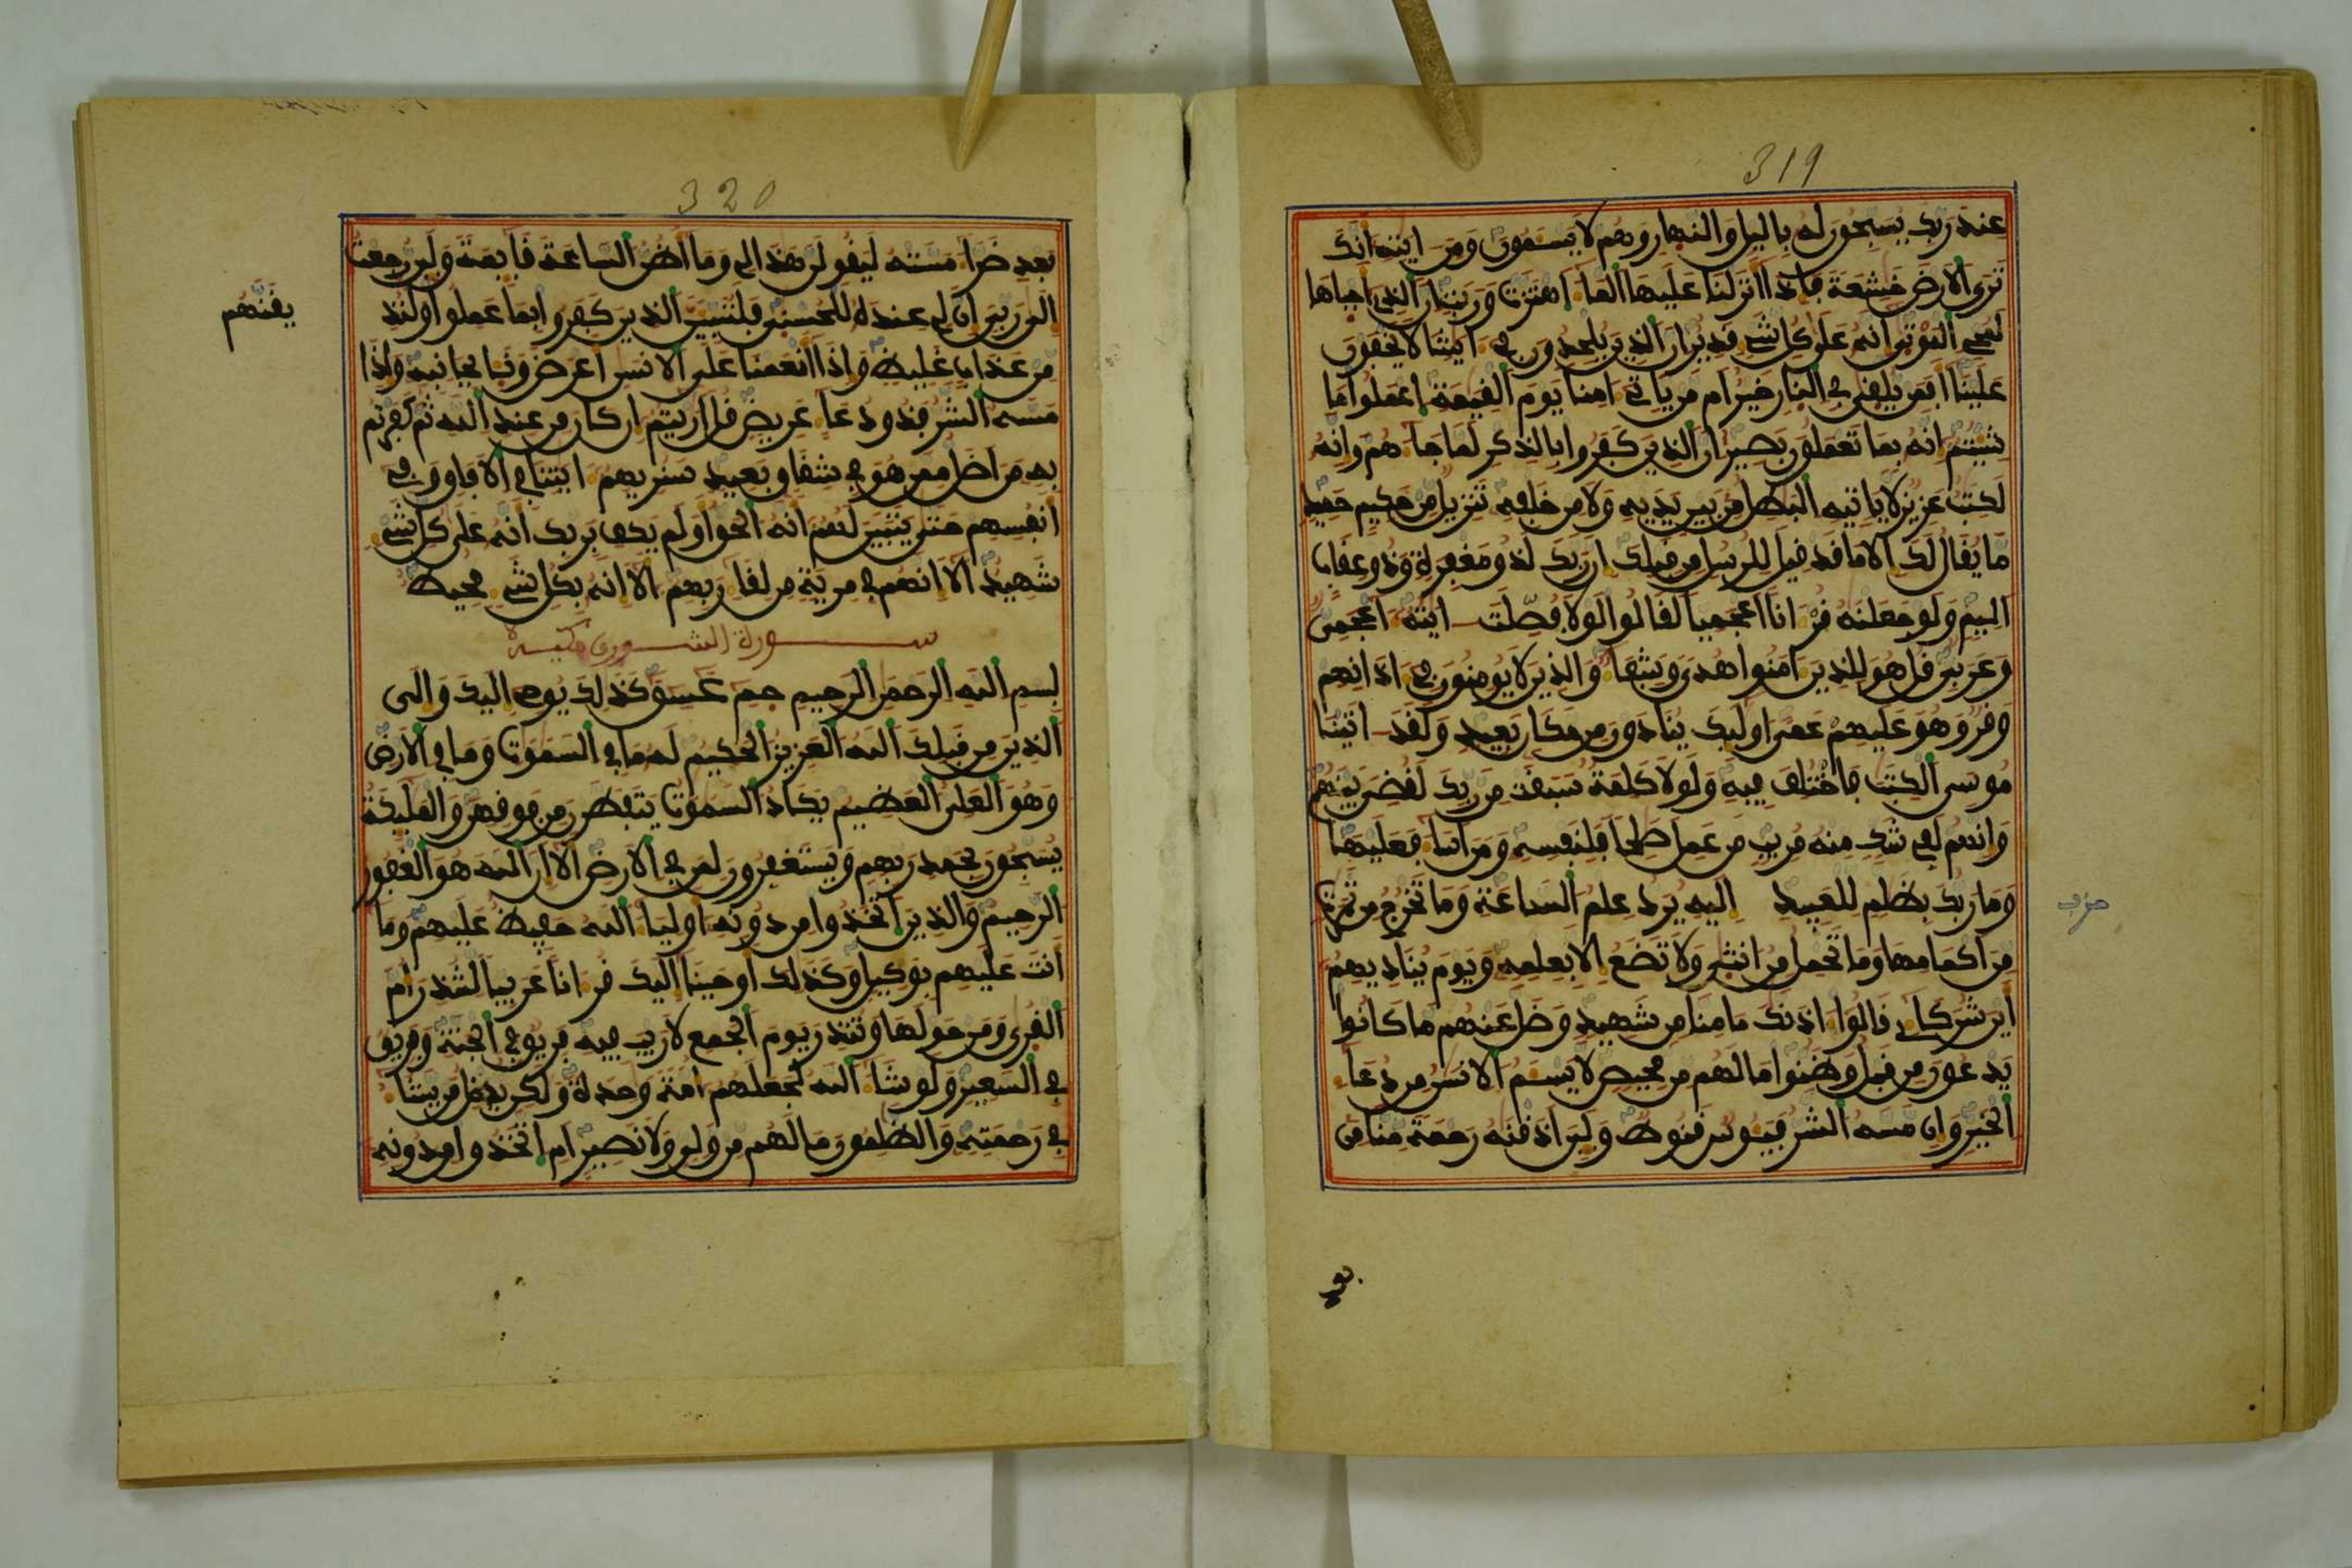 319
عند ربك يسبحون له باليل والنهار وهم لا يسئمون ومن ايته انك
ترى الارض خشعة فاذا انزلنا عليها الما اهتزت وربت ان الذي احياها
لمحي الموتى انه على كل شي قدير ان الذين يلحدون في ايتنا لا يخفون
علينا افمن يلقى في النار خير ام من ياتي امنا يوم القيمة اعملوا ما
شيتم انه بما تعملون بصير ان الذين كفروا بالذكر لما جا هم وانه
لكتب عزيز لا ياتيه البطل من بين يديه ولا من خلفه تنزيل من حكيم حميد
ما يقال لك الا ما قد قيل للرسل من قبلك ان ربك لذو مغفرة وذو عقاب
اليم ولو جعلنه قرانا اعجميا لقالوا لولا فصلت ايته اعجمي
وعربي قل هو للذين امنوا هدى وشفا والذين لا يومنون في اذانهم
وقر وهو عليهم عمى اوليك ينادون من مكان بعيد ولقد اتينا
موسى الكتب فاختلف فيه ولولا كلمة سبقت من ربك لقضي بينهم
وانهم لفي شك منه مريب من عمل صلحا فلنفسه ومن اسا فعليها
وما ربك بظلم للعبيد اليه يرد علم الساعة وما تخرج من ثمرت
حزب
من اكمامها وما تحمل من انثى ولا تضع الا بعلمه ويوم يناديهم
اين شركاي قالوا اذنك ما منا من شهيد وضل عنهم ما كانوا
يدعون من قبل وظنوا ما لهم من محيص لا يسئم الانسن من دعا
الخير وان مسه الشر فيئوس قنوط ولين اذقنه رحمة منا من
320
بعد ضرا مسته ليقولن هذا لي وما اظن الساعة قايمة ولين رجعت
الى ربي ان لي عنده للحسنى فلننبين الذين كفروا بما عملوا ولنذ
يقنهم
من عذاب غليظ واذا انعمنا على الانسن اعرض ونا بجانبه واذا
مسه الشر فذو دعا عريض قل اريتم ان كان من عند الله ثم كفرتم
به من اضل ممن هو في شقاق بعيد سنريهم ايتنا في الافاق وفي
انفسهم حتى يتبين لهم انه الحق اولم يكف بربك انه على كل شي
شهيد الا انهم في مرية من لقا ربهم الا انه بكل شي محيط
سورة الشورى مكية
بسم الله الرحمن الرحيم حم عسق كذلك يوحي اليك والى
الذين من قبلك الله العزيز الحكيم له ما في السموت وما في الارض
وهو العلي العظيم يكاد السموت يتفطرن من فوقهن والمليكة
يسبحون بحمد ربهم ويستغفرون لمن في الارض الا ان الله هو الغفور
الرحيم والذين اتخذوا من دونه اوليا الله حفيظ عليهم وما
انت عليهم بوكيل وكذلك اوحينا اليك قرانا عربيا لتنذر ام
القرى ومن حولها وتنذر يوم الجمع لا ريب فيه فريق في الجنة وفريق
في السعير ولو شا الله لجعلهم امة وحدة ولكن يدخل من يشا
في رحمته والظلمون ما لهم من ولي ولا نصير ام اتخذوا من دونه